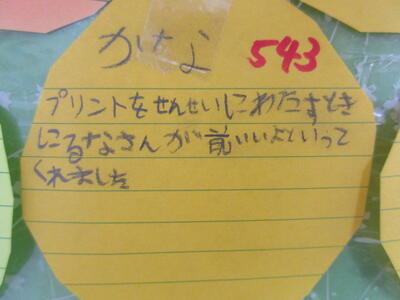 かなよ 543
プリントをせんせいにわたすとき
にるなさんが前いいよといって
くれました